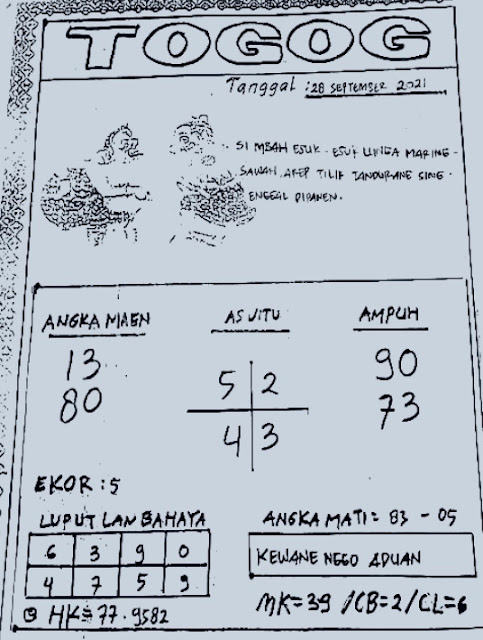 TOGOG
Tanggal : 28 SEPTEMBER 2021
SI MBAH ESUK - ESUK LUNGA MARING -
SAWAH, AREP TILIK TANDURANE SING -
ENGGAL DIPANEN.
ANGKA MAEN
AS JITU
AMPUH
13
5 2
90
80
4 3
73
EKOR : 5
LUPUT LAN BAHAYA
ANGKA MATI = 83 - 05
6 3 9 0
KEWANE NGGO ADUAN
4 7 5 9
HK = 77.9582
MK = 39 / CB = 2 / CL = 6